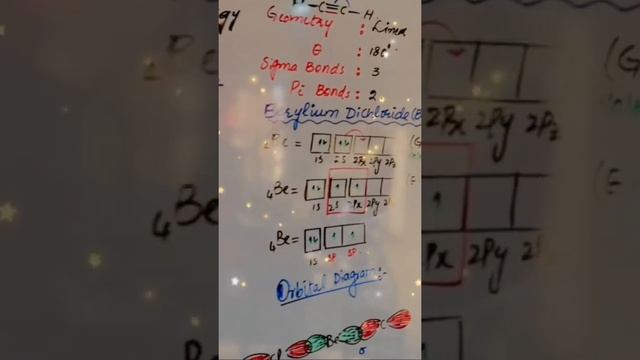 –C≡C–H
Geometry : Linear
θ : 180°
Sigma Bonds : 3
Pi Bonds : 2
Berylium Dichloride (B
1s 2s 2Px 2Py 2Pz
4Be =
1s 2s 2Px 2Py 2
4Be =
1s SP SP
Orbital Diagram:-
Cl Be C
σ
2Px 2Py 2Pz
Px 2Py 2